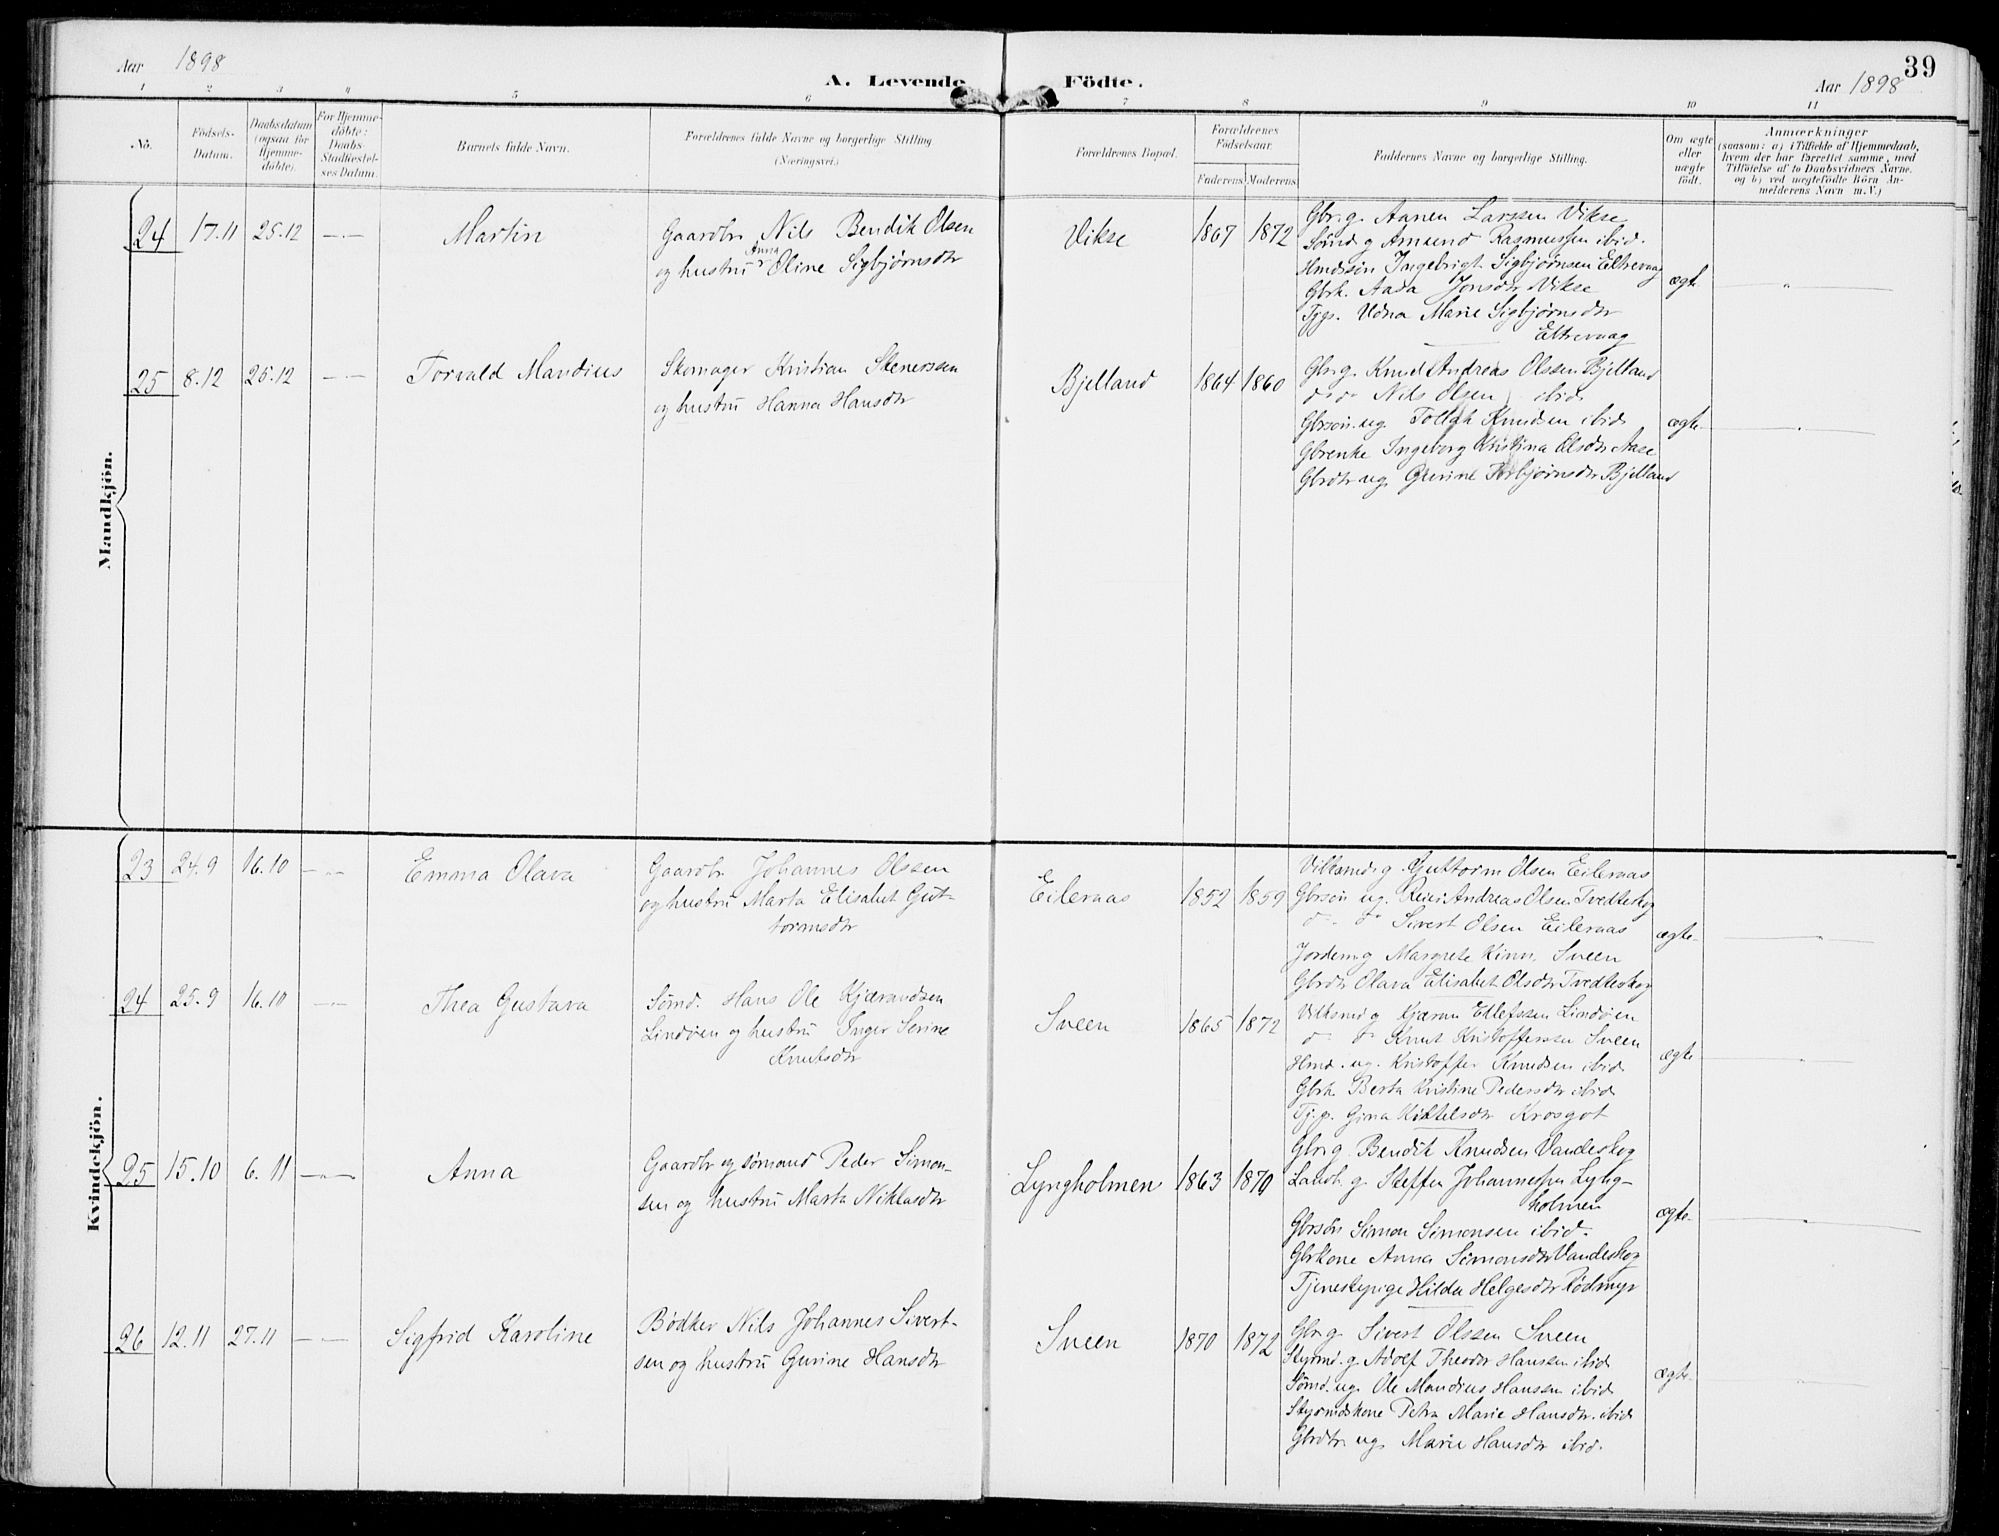 Aar 1898
A. Levende Födte.
39
Aar 1898
1 2 3 4 5 6 7 8 9 10 11
No.
Födsels-
Datum.
Daabsdatum
(ogsaa for
Hjemme-
döbte).
For Hjemme-
döbte:
Daabs-
Stadfæstel-
ses Datum.
Barnets fulde Navn.
Forældrenes fulde Navne og borgerlige Stilling
(Næringsvei.)
Forældrenes Bopæl.
Forældrenes
Födselsaar.
Faderens Moderens
Faddernes Navne og borgerlige Stilling.
Om ægte
eller
uægte
födt.
Anmærkninger
(saasom: a) i Tilfælde af Hjemmedaab,
hvem der har forrettet samme, med
Tilföielse af to Daabsvidners Navne.
og b) ved uægtefödte Börn An-
melderens Navn m. V.)
Mandkjön.
24 17.11 25.12
Martin
Gaardbr Nils Bendik Olsen
og hustru Anna Oline Sigbjørnsdtr
Vikse
1867 1872
Gbr.g. Aanen Larssen Vikse
Sømd g Amund Rasmussen ibid.
Hmdssøn Ingebrigt Sigbjørnsen Eltrevaag
Gbrk. Aasa Jonsdtr Vikse
Tjgp. Edna Marie Sigbjørnsdtr
Eltrevaag
ægte
25 8.12 25.12
Torvald Mandius
Skomager Kristian Stenerssen
og hustru Hanna Hansdtr
Bjelland
1864 1860
Gbr g. Knud Andreas Olssen Bjelland
do do Nils Olsen ibid
Gbrsøn ug. Tollak Knudsen ibid
Gbrenke Ingeborg Kristina Olsdtr Aase
Gbrdtr ug. Gurine Torbjørnsdtr Bjelland
ægte
Kvindekjön.
23 24.9 16.10
Emma Olava
Gaardbr Johannes Olssen
og hustru Marta Elisabet Gut-
tormsdtr
Eileraas
1852 1859
Vilkaarsmd g. Guttorm Olsen Eileraas
Gbrsøn ug. Reier Andreas Olsen Tvedteskog
do do Sivert Olsen Eileraas
Jordem g Margrete Kinn Sveen
Gbrdtr Olava Elisabet Olsdtr Tvedteskog
ægte
24 25.9 16.10
Thea Gustava
Sømd. Hans Ole Kjærandsen
Lindøen og hustru Inger Serine
Knutsdtr
Sveen
1865 1872
Vilkmd g Kjæran Ellefssen Lindøen
do do Knut Kristofferssen Sveen
Hmd. ug. Kristoffer Knudsen ibid
Gbrk Berta Kristine Pedersdtr ibid
Tj.p. Gina Kittelsdtr Krosgot
ægte
25 15.10 6.11
Anna
Gaardbr og sømand Peder Simon-
sen og hustru Marta Niklasdtr
Lyngholmen
1863 1870
Gbr g. Bendik Knudsen Vandeskog
Landh. g. Steffen Johannessen Lyng-
holmen
Gbrsøn Simon Simonsen ibid.
Gbrkone Anna Simonsdtr Vandeskog
Tjenestepige Hilda Helgesdtr Rødmyr
ægte
26 12.11 27.11
Sigfrid Karoline
Bødker Nils Johannes Sivert-
sen og hustru Gurine Hansdtr
Sveen
1870 1872
Gbr g. Sivert Olssen Sveen
Styrmd. g. Adolf Theodor Hanssen ibid
Sømd. ug. Ole Mandius Hanssen ibid
Styrmdskone Petra Marie Hansdtr. ibid
Gbrdtr ug. Marie Hansdtr ibid.
ægte